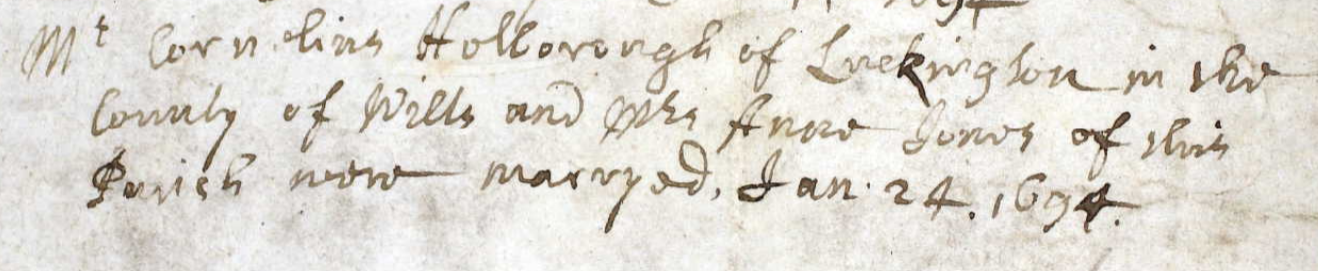 1694
Mr Cornelius Holborough of Luckington in the
County of Wilts and Mrs Anne Jones of this
Parish were marryed, Jan. 24. 1694.